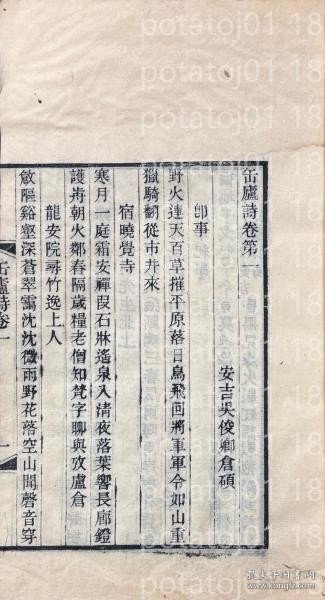 缶廬詩卷第一
安吉吳俊卿倉碩
卽事
野火連天百草摧平原落日鳥飛回將軍軍令如山重
獵騎翻從市井來
宿曉覺寺
寒月一庭霜安禪叚石牀遙泉入淸夜落葉響長廊鐙
護歬朝火鄰舂隔歲糧老僧知梵字聊與攷盧倉
龍安院尋竹逸上人
敧隔谿壑深蒼翠靄沈沈微雨野花落空山聞磬音穿
缶廬詩卷一
一
potatoj01 18
孔夫子旧书网